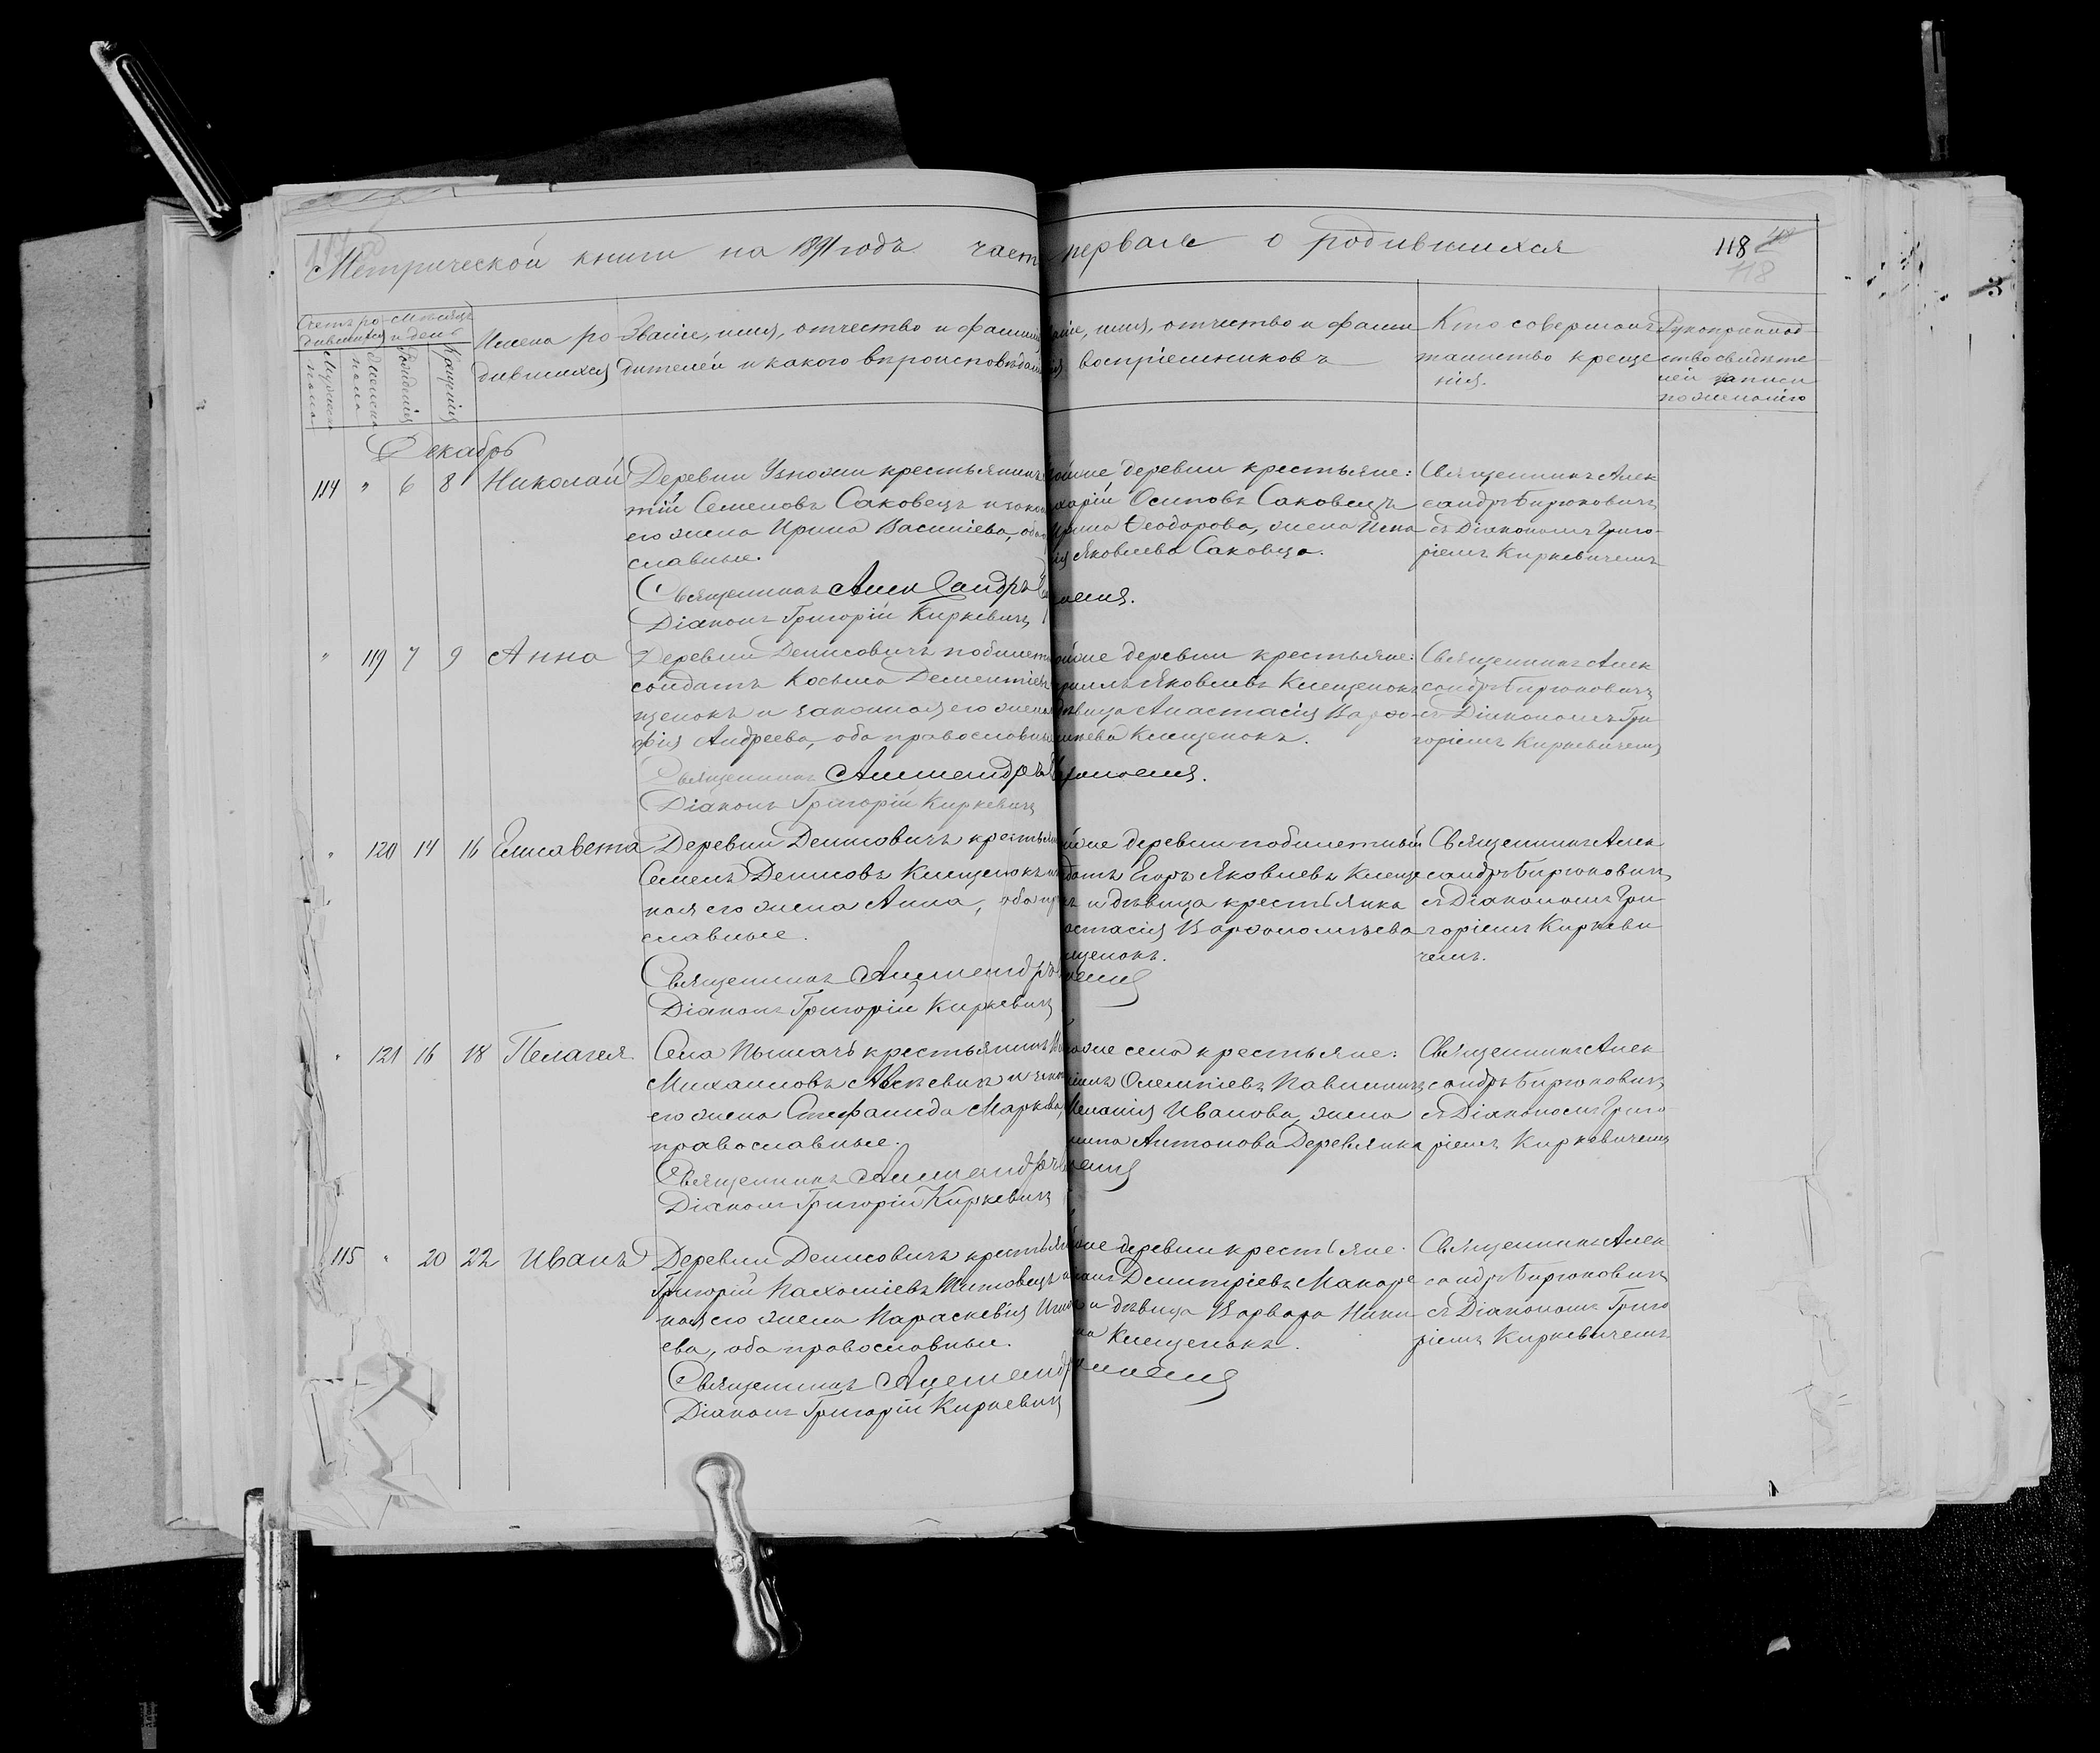 Метрической книги на 1891 годъ част первая о родившихся 118
118
Счетъ ро
дившихся
Мѣсяцъ
и день
Мужеска
пола
Женска
пола
Рожденія
Крещенія
Имена ро
дившихся
Званіе, имя, отчество и фамилі
дителей и какого вѣроисповѣдан
аніе, имя, отчество и фами
воспріемниковъ
Кто совершалъ
таинство креще
нія.
Рукоприклад
ство свидѣте
лей записи
по желанію
Декабрь
114 " 6 8 Николай
Деревни крестьянинъ
тій Семеновъ Саковецъ и закон
его жена Ирина Василіева, оба
славные.
Священникъ Александръ
Діаконъ Григорій Киркевичъ
деревни крестьяне:
харій Осиповъ Саковецъ
Ѳеодорова, жена
Яковлева Саковца.
Священникъ Алек
сандръ Бирюковичъ
съ Діакономъ Григо-
ріемъ Киркевичемъ
" 119 7 9 Анна
Деревни Денисовичъ побилетн
солдатъ Косьма Дементіев
щенокъ и законная его жена
фія Андреева, оба православны
Священникъ Александръ
Діаконъ Григорій Киркевичъ
деревни крестьяне:
Яковлевъ Клещенокъ
дѣвица Анастасія Варѳо-
Клещенокъ.
Священникъ Алек
сандръ Бирюковичъ
съ Діакономъ Гри
горіемъ Киркевичемъ
" 120 14 16 Елисавета
Деревни Денисовичъ крестьян
Семенъ Денисовъ Клещенокъ и
ная его жена Анна, оба пр
славные.
Священникъ Александръ
Діаконъ Григорій Киркевичъ
деревни побилетный
датъ Егоръ Яковлевъ Клеще
и дѣвица крестьянка
астасія Варѳоломѣева
щенокъ.
Священникъ Алек
сандръ Бирюковичъ
съ Діакономъ Гри
горіемъ Киркеви
чемъ.
" 121 16 18 Пелагея
Села крестьянинъ
Михаиловъ и зак
его жена Стефанида Маркова,
православные.
Священникъ Александръ
Діаконъ Григорій Киркевичъ
села крестьяне:
Иванова, жена
Антонова Деревянка
Священникъ Алек
сандръ Бирюковичъ
съ Діакономъ Григо
ріемъ Киркевичемъ
115 " 20 22 Иванъ
Деревни Денисовичъ крестьян
Григорій Пахоміевъ и
ная его жена Параскевія
ева, оба православные.
Священникъ Александръ
Діаконъ Григорій Киркевичъ
деревни крестьяне:
Димитріевъ Макаре
и дѣвица Варвара
Клещенокъ.
Священникъ Алек
сандръ Бирюковичъ
съ Діакономъ Григо
ріемъ Киркевичемъ